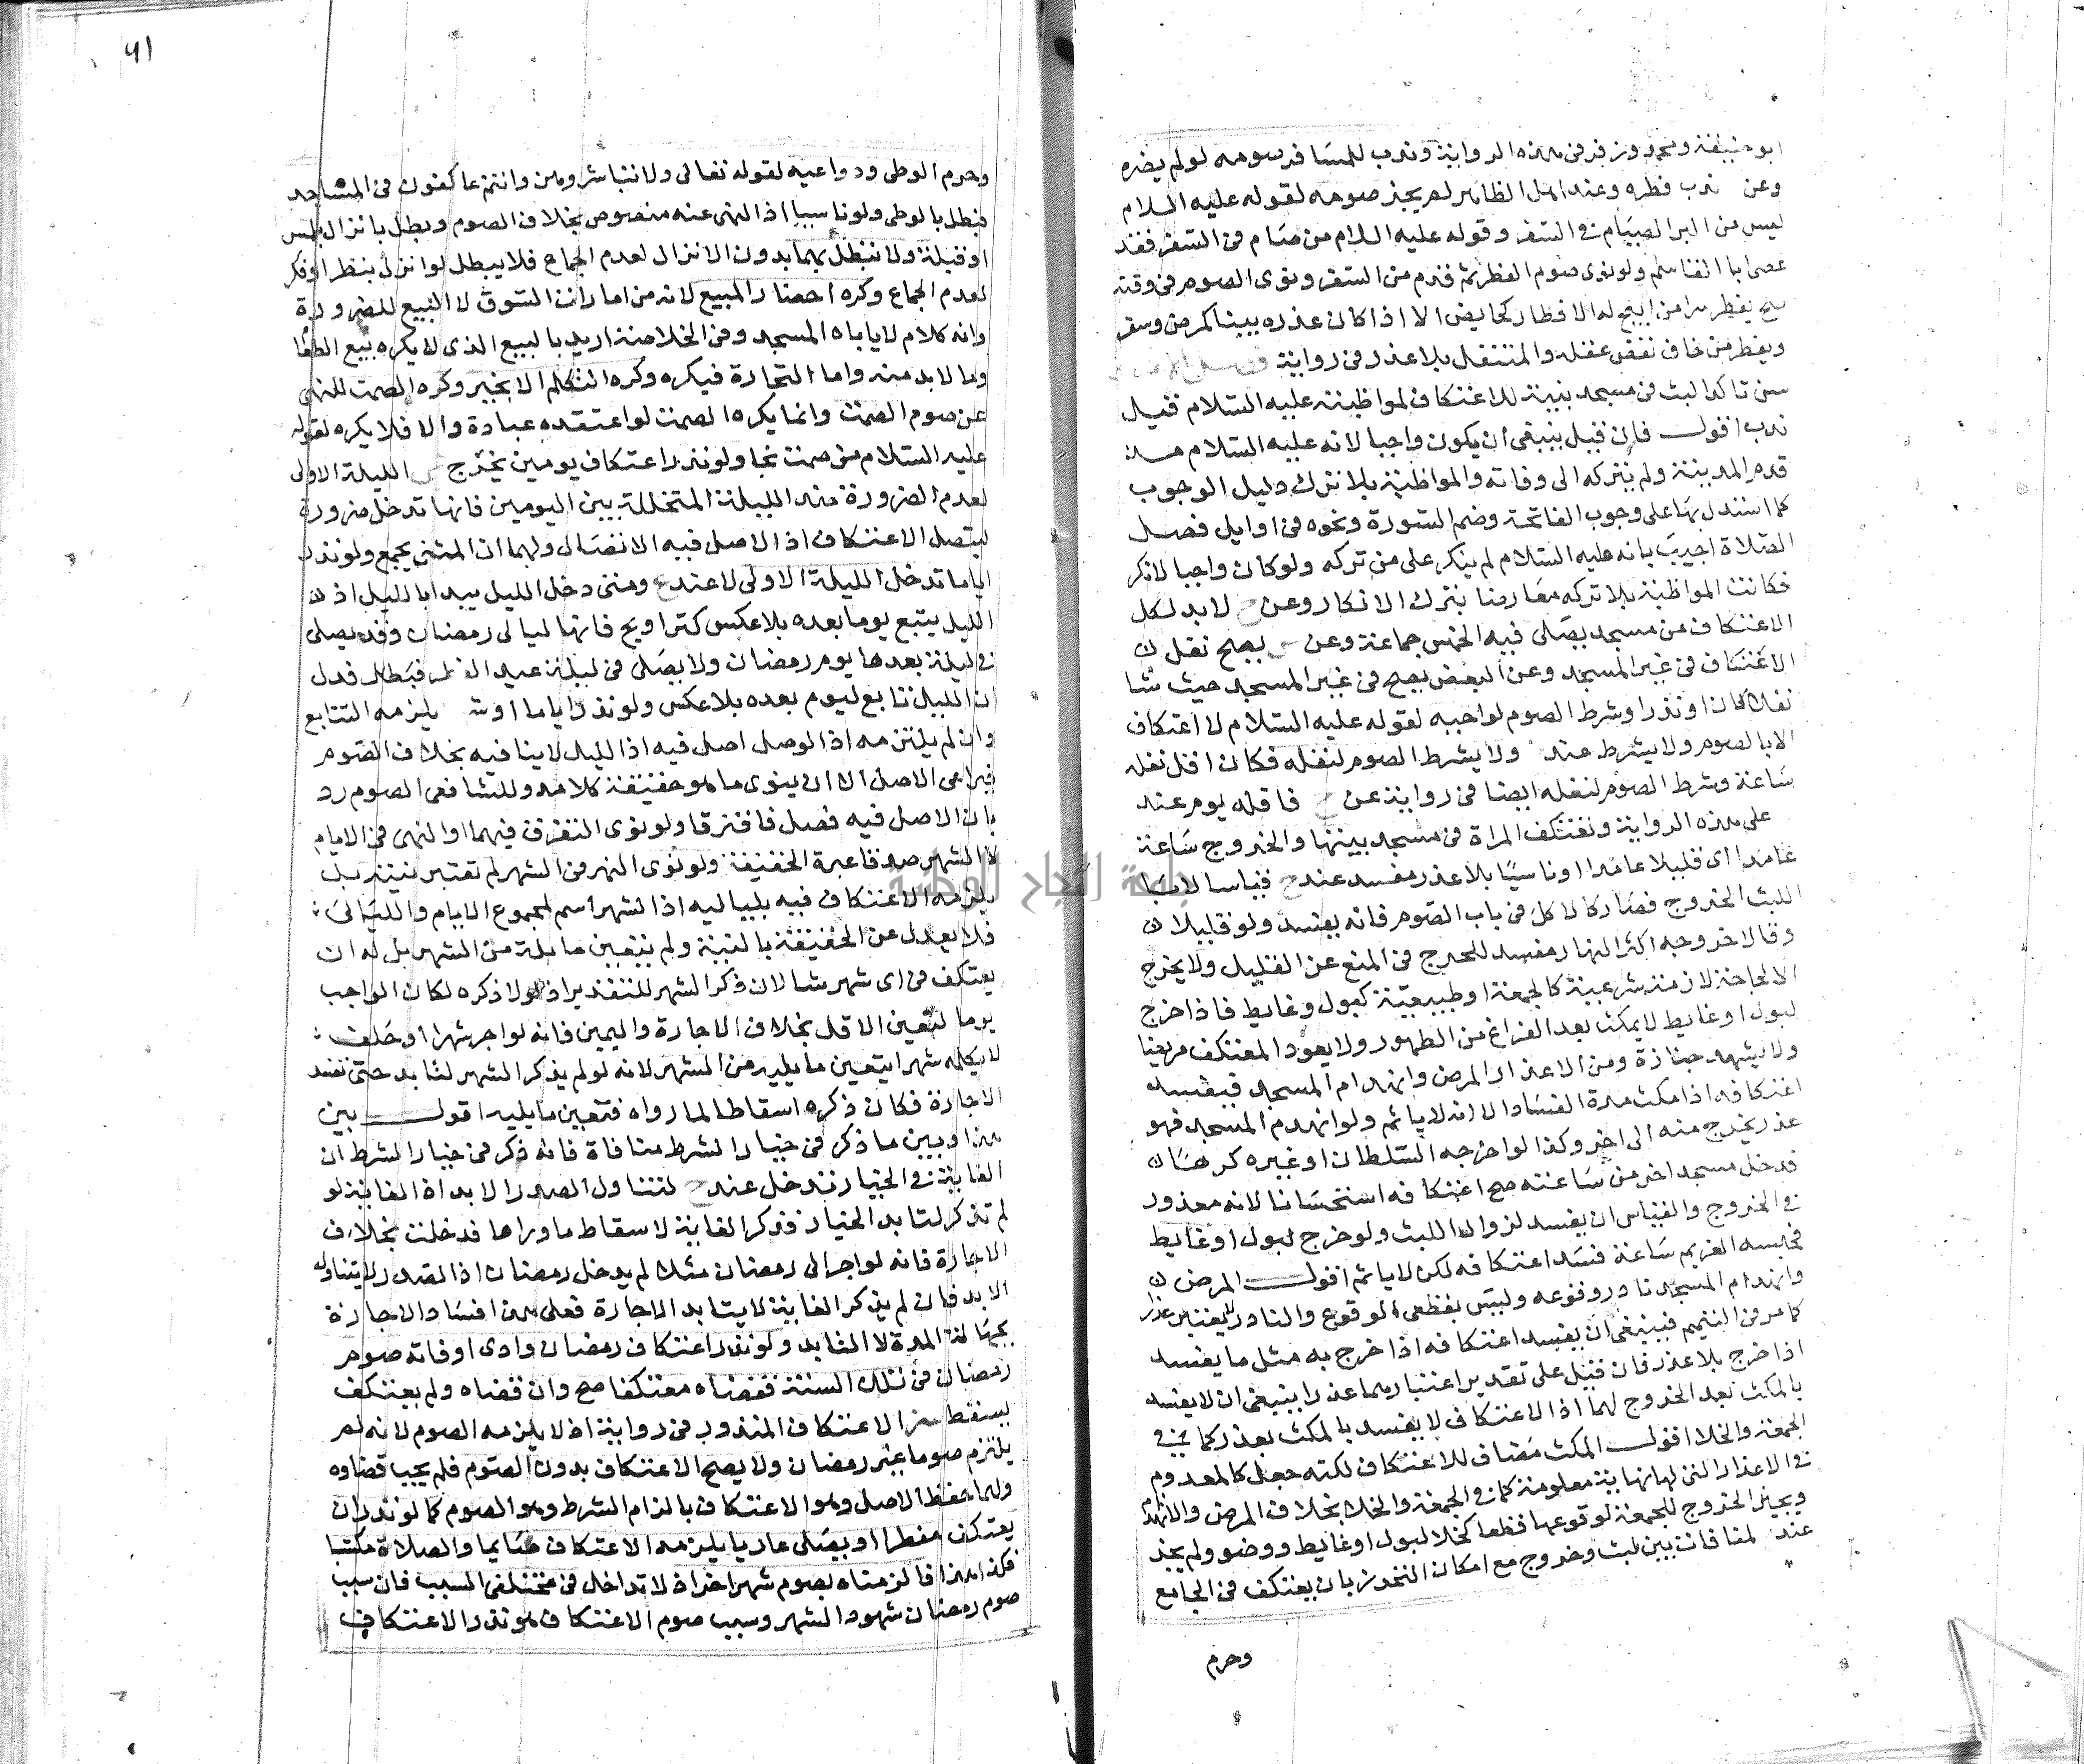 ابو حنيفة ومحمد وزفر فى هذه الرواية وندب للمسافر صومه لو لم يضره
وعن ندب فطره وعند اهل الظاهر لم يجز صومه لقوله عليه السلام
ليس من البر الصيام فى السفر وقوله عليه السلام من صام فى السفر فقد
عصى ابا القاسم ولو نوى صوم الفطر ثم قدم من السفر ونوى الصوم فى وقته
صح يفطر سرا من ابيح له الافطار كحايض الا اذا كان عذره بينا كمرض وسفر
ويفطر من خاف نقض عقله والمتنفل بلا عذر فى رواية
سن تاكدا لبث فى مسجد بنية للاعتكاف لمواظبته عليه السلام فقيل
ندب اقول فان قيل ينبغى ان يكون واجبا لانه عليه السلام منذ
قدم المدينة ولم يتركه الى وفاته والمواظبة بلا ترك دليل الوجوب
كما استدل بها على وجوب الفاتحة وضم السورة ونحوه فى اوايل فصل
الصلاة اجيب بانه عليه السلام لم ينكر على من تركه ولو كان واجبا لانكر
فكانت المواظبة بلا تركه معارضا بترك الانكار وعن ح لا بد لكل
الاعتكاف من مسجد يصلى فيه الخمس جماعة وعن س يصح نفل
الاعتكاف فى غير المسجد وعن البعض يصح فى غير المسجد حيث شا
نفلا كان او نذرا وشرط الصوم لواجبه لقوله عليه السلام لا اعتكاف
الا بالصوم ولا يشرط عند ولا يشرط الصوم لنفله فكان اقل نفله
ساعة وشرط الصوم لنفله ايضا فى رواية عن ح فاقله يوم عند
على هذه الرواية وتعتكف المراة فى مسجد بيتها والخروج ساعة
عامدا اى قليلا عامدا او ناسيا بلا عذر مفسد عند ح قياسا لان
اللبث الخروج فصار كالاكل فى باب الصوم فانه يفسد ولو قليلا
وقالا خروجه اكثر النهار مفسد للحرج فى المنع عن القليل ولا يخرج
الا لحاجة لازمة شرعية كالجمعة او طبيعية كبول وغايط فاذا خرج
لبول او غايط لا يمكث بعد الفراغ من الطهور ولا يعود المعتكف مريضا
ولا يشهد جنازة ومن الاعذار المرض وانهدام المسجد فيفسد
اعتكافه اذا مكث مدة الفساد الا انه لا ياثم ولو انهدم المسجد فهو
عذر يخرج منه الى اخر وكذا لو اخرجه السلطان او غيره كرها
فدخل مسجدا اخر من ساعته صح اعتكافه استحسانا لانه معذور
فى الخروج والقياس ان يفسد لزوال اللبث ولو خرج لبول او غايط
فحبسه الغريم ساعة فسد اعتكافه لكن لا ياثم اقول المرض
وانهدام المسجد نادر وقوعه وليس بقطعى الوقوع والنادر لا يعتبر عذرا
كما مر فى التيمم فينبغى ان يفسد اعتكافه اذا خرج به مثل ما يفسد
اذا خرج بلا عذر فان قيل على تقدير اعتبارهما عذرا ينبغى ان لا يفسد
بالمكث بعد الخروج لهما اذا الاعتكاف لا يفسد بالمكث بعذر كما فى
الجمعة والخلا اقول المكث مضاف للاعتكاف لكنه جعل كالمعدوم
فى الاعذار التى لها نهاية معلومة كما فى الجمعة والخلا بخلاف المرض والانهدام
ويجيز الخروج للجمعة لوقوعها قطعا كخلا لبول او غايط ووضو ولم يجز
عند لمنافات بين لبث وخروج مع امكان التحرز بان يعتكف فى الجامع
وحرم
٦١
وحرم الوطى ودواعيه لقوله تعالى ولا تباشروهن وانتم عاكفون فى المساجد
فبطل بالوطى ولو ناسيا اذا النهى عنه منصوص بخلاف الصوم وبطل بانزال بلمس
او قبلة ولا تبطل بهما بدون الانزال لعدم الجماع فلا يبطل لو انزل بنظر او فكر
لعدم الجماع وكره احضار المبيع لانه من امارات السوق لا البيع للضرورة
وانه كلام لا ياباه المسجد وفى الخلاصة اريد بالبيع الذى لا يكره بيع الطعا
وما لا بد منه واما التجارة فيكره وكره التكلم الا بخير وكره الصمت للنهى
عن صوم الصمت وانما يكره الصمت لو اعتقده عبادة والا فلا يكره لقوله
عليه السلام من صمت نجا ولو نذر اعتكاف يومين يخرج س الليلة الاولى
لعدم الضرورة عند الليلة المتخللة بين اليومين فانها تدخل ضرورة
ليتصل الاعتكاف اذ الاصل فيه الاتصال ولهما ان المثنى يجمع ولو نذر
اياما تدخل الليلة الاولى لا عند ومتى دخل الليل يبدا بالليل اذ
الليل يتبع يوما بعده بلا عكس كتراويح فانها ليالى رمضان وقد يصلى
فى ليلة بعدها يوم رمضان ولا يصلى فى ليلة عيد الفطر فبطل فدل
ان الليل تابع ليوم بعده بلا عكس ولو نذر اياما او يلزمه التتابع
وان لم يلتزمه اذ الوصل اصل فيه اذ الليل لا ينافيه بخلاف الصوم
فيراعى الاصل الا ان ينوى ما هو حقيقة كلامه وللشافعى الصوم رد
بان الاصل فيه فصل فافترقا ولو نوى التفرق فيهما او النهر فى الايام
لا الشهر صدقا عبرة الحقيقة ولو نوى النهر فى الشهر لم تعتبر نيته بل
يلزمه الاعتكاف فيه بلياليه اذ الشهر اسم لمجموع الايام والليالى
فلا يعدل عن الحقيقة بالنية ولم يتعين ما يله من الشهر بل له ان
يعتكف فى اى شهر شا لان ذكر الشهر للتقدير اذ لولا ذكره لكان الواجب
يوما لتعين الاقل بخلاف الاجارة واليمين فانه لو اجر شهرا او حلف
لا يكلمه شهرا يتعين ما يليه من الشهر لانه لو لم يذكر الشهر لتابد حتى تفسد
الاجارة فكان ذكره اسقاطا لما رواه فتعين ما يليه اقول بين
هذا وبين ما ذكر فى خيار الشرط منافاة فانه ذكر فى خيار الشرط ان
الغاية فى الخيار تدخل عند ح لتناول الصدر الابد اذ الغاية لو
لم تذكر لتابد الخيار فذكر الغاية لاسقاط ما وراها فدخلت بخلاف
الاجارة فانه لو اجر الى رمضان مثلا لم يدخل رمضان اذ الصدر لا يتناول
الابد فان لم يذكر الغاية لا يتابد الاجارة فعلى هذا فساد الاجارة
بجهالة المدة لا التابيد ولو نذر اعتكاف رمضان وادى او فاته صوم
رمضان فى تلك السنة فقضاه معتكفا صح وان قضاه ولم يعتكف
يسقط هذا الاعتكاف المنذور فى رواية اذ لا يلزمه الصوم لانه لم
يلتزم صوما غير رمضان ولا يصح الاعتكاف بدون الصوم فلم يجب قضاوه
ولهما حفظ الاصل وهو الاعتكاف بالزام الشرط وهو الصوم كما لو نذر ان
يعتكف مفطرا او يصلى عاريا يلزمه الاعتكاف صايما والصلاة مكتسيا
فكذا هذا فالزمناه بصوم شهر اخر اذ لا تداخل فى مختلفى السبب فان سبب
صوم رمضان شهود الشهر وسبب صوم الاعتكاف هو نذر الاعتكاف
جامعة النجاح الوطنية